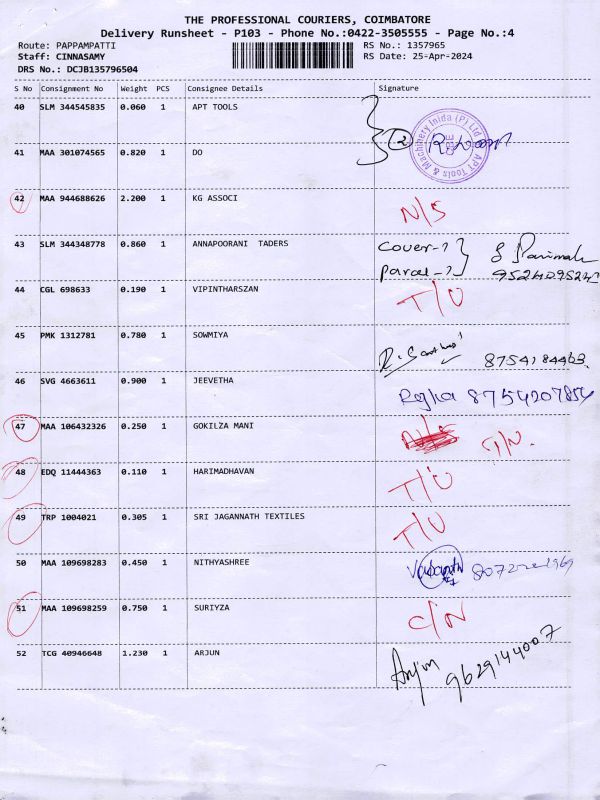 THE PROFESSIONAL COURIERS, COIMBATORE
Delivery Runsheet - P103 - Phone No.:0422-3505555 - Page No.:4
Route: PAPPAMPATTI RS No.: 1357965
Staff: CINNASAMY RS Date: 25-Apr-2024
DRS No.: DCJB135796504
S No Consignment No Weight PCS Consignee Details Signature
40 SLM 344545835 0.060 1 APT TOOLS
APT Tools & Machinery Inida (P) Ltd CBE
2
41 MAA 301074565 0.820 1 DO
42 MAA 944688626 2.200 1 KG ASSOCI N/S
43 SLM 344348778 0.860 1 ANNAPOORANI TADERS Cover-1
Parcel-1
44 CGL 698633 0.190 1 VIPINTHARSZAN T/U
45 PMK 1312781 0.780 1 SOWMIYA 8754184463
46 SVG 4663611 0.900 1 JEEVETHA 8754207854
47 MAA 106432326 0.250 1 GOKILZA MANI
48 EDQ 11444363 0.110 1 HARIMADHAVAN T/U
49 TRP 1004021 0.305 1 SRI JAGANNATH TEXTILES T/U
50 MAA 109698283 0.450 1 NITHYASHREE
51 MAA 109698259 0.750 1 SURIYZA C/N
52 TCG 40946648 1.230 1 ARJUN Arjun 9629144007